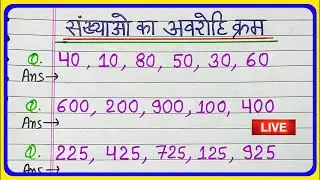 संख्याओ का अवरोहि क्रम
Q. 40, 10, 80, 50, 30, 60
Ans→
Q. 600, 200, 900, 100, 400
Ans→
LIVE
Q. 225, 425, 725, 125, 925
Ans→